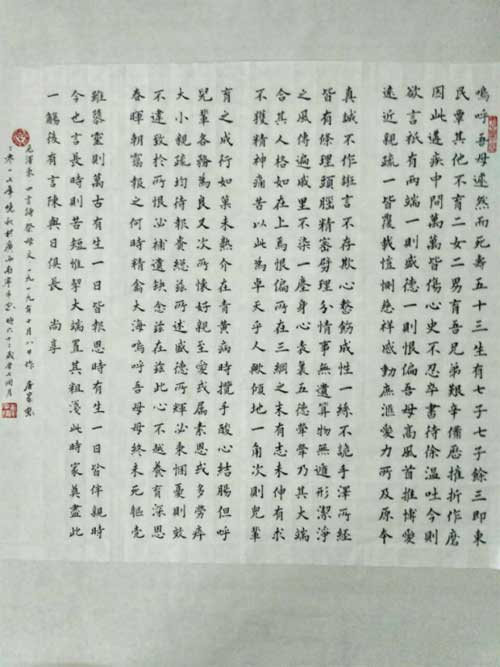 嗚呼吾母遽然而死壽五十三生有七子七子餘三即東
民覃其他不育二女二男育吾兄弟艱辛備歷摧折作磨
因此遘疾中間萬萬皆傷心史不忍卒書待徐溫吐今則
欲言祇有兩端一則盛德一則恨偏吾母高風首推博愛
遠近親疏一皆覆載愷惻慈祥感動庶滙愛力所及原本
真誠不作誑言不存欺心整飭成性一絲不詭手澤所經
皆有條理頭腦精密劈理分情事無遺算物無遁形潔淨
之風傳遍戚里不染一塵身心表裏五德犖犖乃其大端
合其人格如在上焉恨偏所在三綱之末有志未伸有求
不獲精神痛苦以此為卓天乎人歟傾地一角次則兒輩
育之成行如果未熟介在青黃病時攬手酸心結腸但呼
兒輩各務為良又次所懷好親至愛或屬素恩或多勞瘁
大小親疏均待報賚總茲所述盛德所輝泌秉悃則效
不違致於所恨泌補遺缺念茲在茲此心不越養育深恩
春暉朝靄報之何時精禽大海嗚呼吾母母終未死軀殼
雖隳靈則萬古有生一日皆報恩時有生一日皆伴親時
今也言長時則苦短惟挈大端置其粗淺此時家奠盡此
一觴後有言陳與日俱長 尚享
毛澤東四言詩祭母文一九一九年十月八日作
二零一七年於廣西南寧市時六十二歲閏月